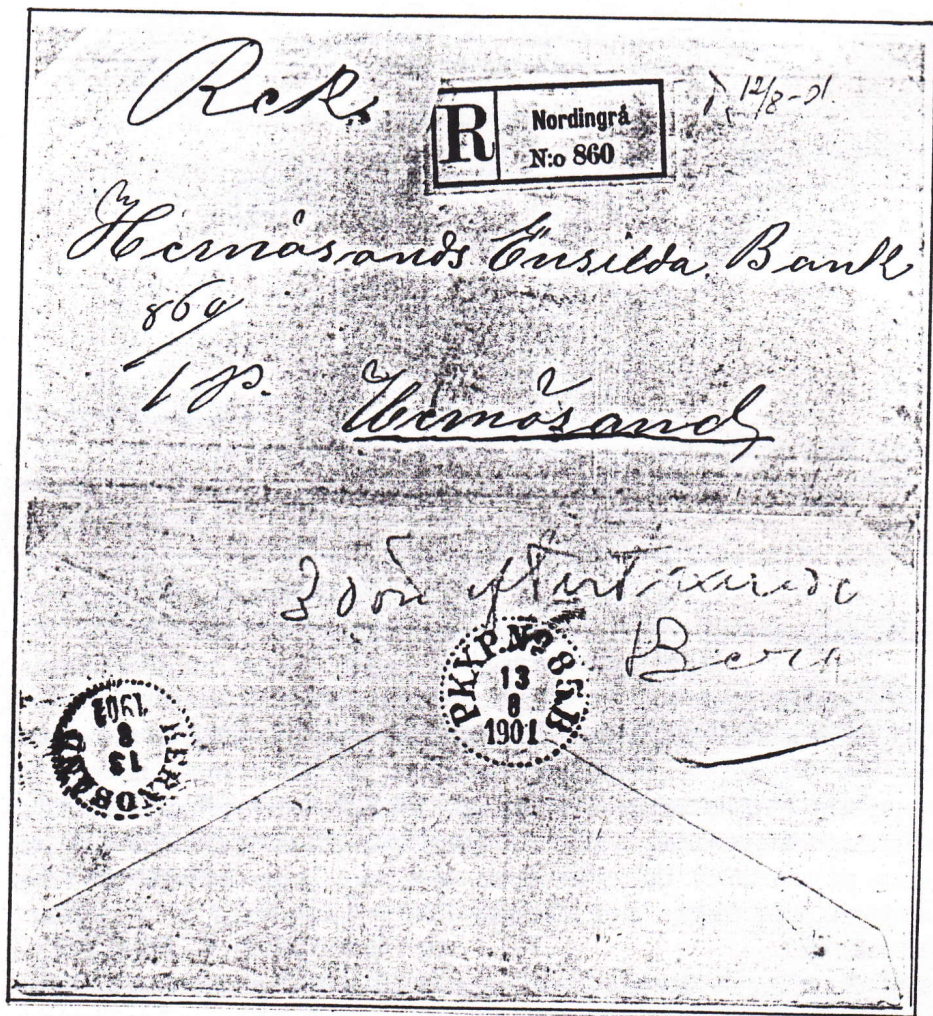 Rek.
R
Nordingrå
N:o 860
12/8-01.
Hernösands Enskilda Bank
860
1 p.
Hernösand
3 dön
PKXP. No 85.B
13
8
1901
HERNÖSAND
13
8
1901